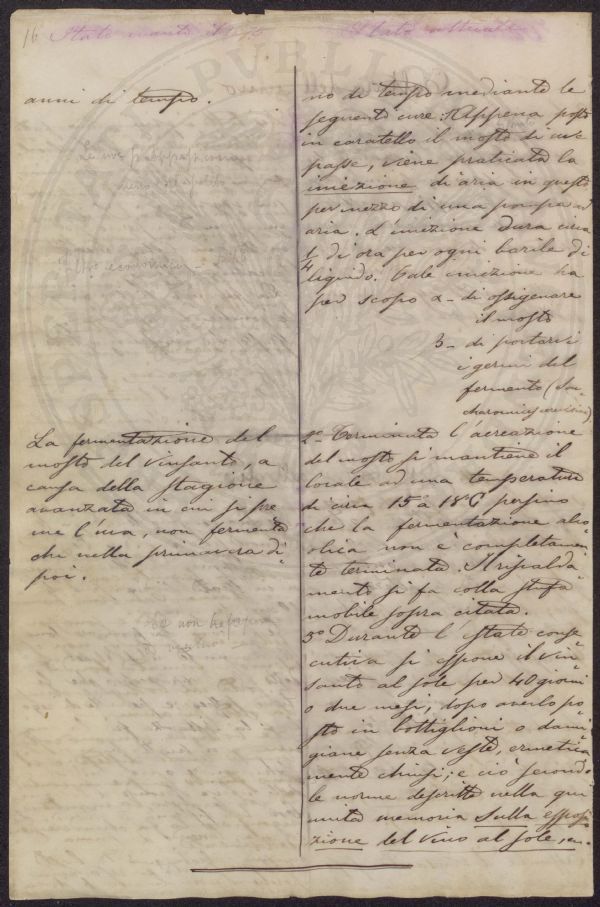 16 Stato
Stato attuale
anni di tempo.
La fermentazione del
mosto del Vinsanto, a
causa della stagione
avanzata in cui si pre
me l'uva, non fermenta
che nella primavera di
poi.
no di tempo mediante le
seguenti cure: 1° Appena posto
in caratello il mosto di uve
passe, viene praticata la
iniezione di aria in questo
per mezzo di una pompa ad
aria. L'iniezione dura circa
1/4 di ora per ogni barile di
liquido. Tale iniezione ha
per scopo α - di ossigenare
il mosto
β - di portarvi
i germi del
fermento (Sac
charomices
2° Terminata l'aereazione
del mosto si mantiene il
locale ad una temperatura
di circa 15° a 18°C persino
che la fermentazione alco
olica non è completamen
te terminata. Il riscalda
mento si fa colla stufa
mobile sopra citata.
3° Durante l'Estate conse
cutiva si espone il vin
santo al sole per 40 giorni
o due mesi, dopo averlo po
sto in bottiglioni o dami
giane senza veste, ermetica
mente chiusi; e ciò secondo
le norme descritte nella qui
unita memoria Sulla esposi
zione del vino al sole, en.